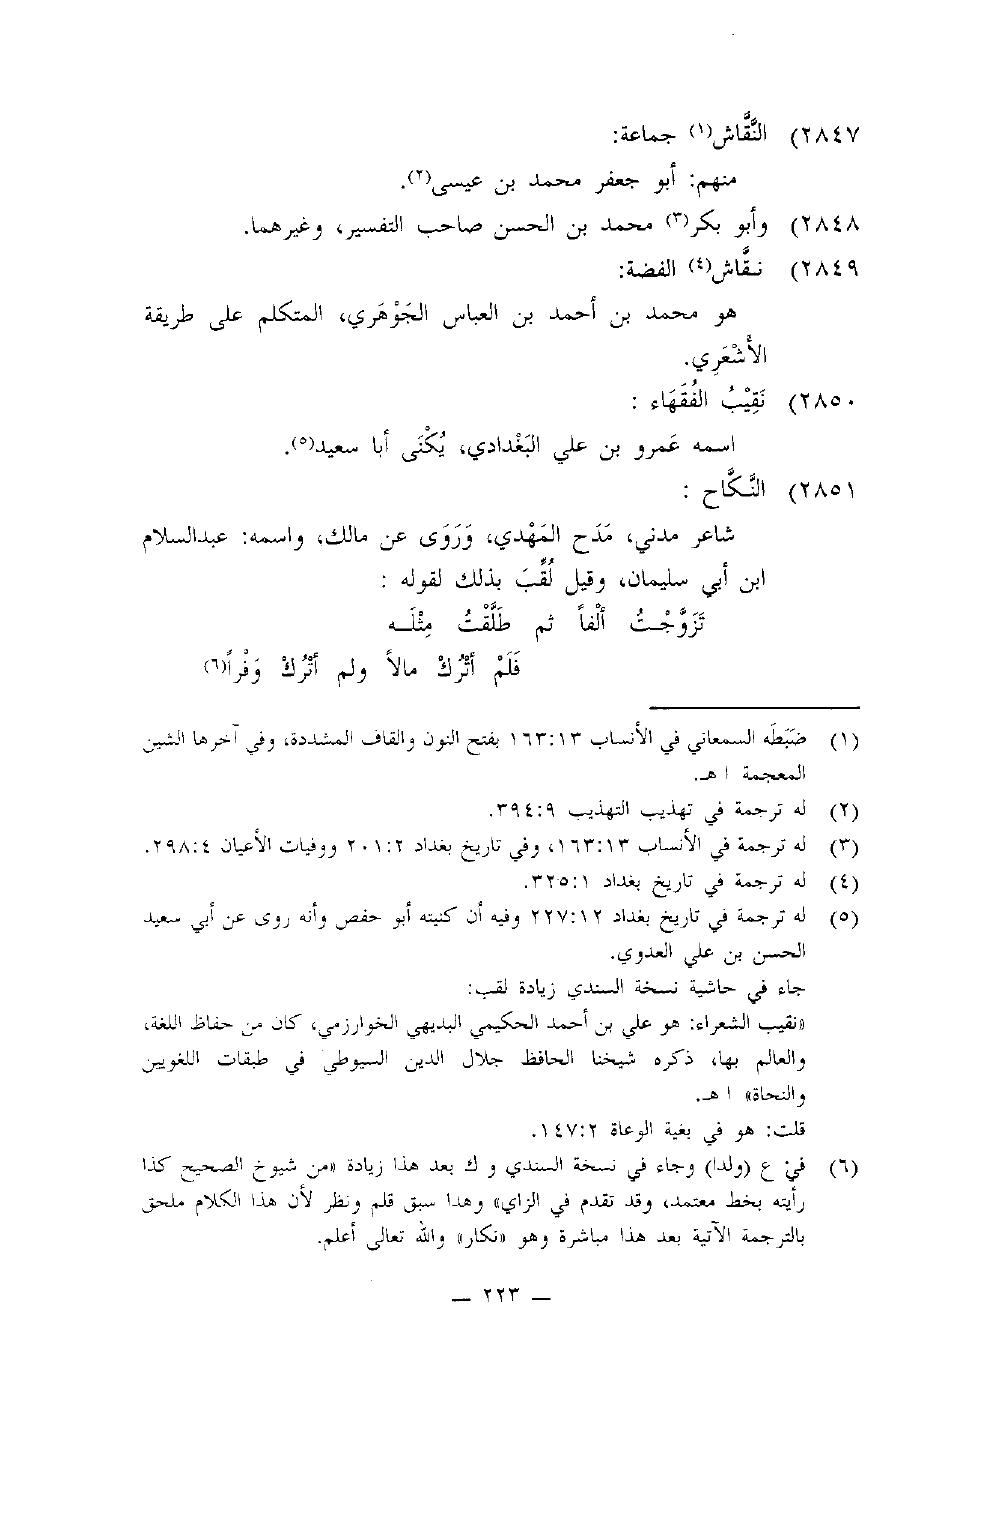 ٢٨٤٧) النَّقَّاش(١) جماعة:
منهم: أبو جعفر محمد بن عيسى(٢).
٢٨٤٨) وأبو بكر(٣) محمد بن الحسن صاحب التفسير، وغيرهما.
٢٨٤٩) نقَّاش(٤) الفضة:
هو محمد بن أحمد بن العباس الجَوْهَري، المتكلم على طريقة
الأَشْعَرِي.
٢٨٥٠) نَقِيْبُ الفُقَهَاء :
اسمه عَمرو بن علي البَغْدادي، يُكْنَى أبا سعيد(٥).
٢٨٥١) النَّكَّاح :
شاعر مدني، مَدَح المَهْدي، وَرَوَى عن مالك، واسمه: عبدالسلام
ابن أبي سليمان، وقيل لُقِّبَ بذلك لقوله :
تَزَوَّجْتُ أَلْفاً ثم طَلَّقْتُ مِثْلَه
فَلَمْ أَتْرُكْ مالاً ولم أَتْرُكْ وَفْراً(٦)
(١) ضَبَطَه السمعاني في الأنساب ١٦٣:١٣ بفتح النون والقاف المشددة، وفي آخرها الشين
المعجمة ا هـ.
(٢) له ترجمة في تهذيب التهذيب ٣٩٤:٩.
(٣) له ترجمة في الأنساب ١٦٣:١٣، وفي تاريخ بغداد ٢٠١:٢ ووفيات الأعيان ٢٩٨:٤.
(٤) له ترجمة في تاريخ بغداد ٣٢٥:١.
(٥) له ترجمة في تاريخ بغداد ٢٢٧:١٢ وفيه أن كنيته أبو حفص وأنه روى عن أبي سعيد
الحسن بن علي العدوي.
جاء في حاشية نسخة السندي زيادة لقب:
«نقيب الشعراء: هو علي بن أحمد الحكيمي البديهي الخوارزمي، كان من حفاظ اللغة،
والعالم بها، ذكره شيخنا الحافظ جلال الدين السيوطي في طبقات اللغويين
والنحاة» ا هـ.
قلت: هو في بغية الوعاة ١٤٧:٢.
(٦) في ع (ولدا) وجاء في نسخة السندي و ك بعد هذا زيادة «من شيوخ الصحيح كذا
رأيته بخط معتمد، وقد تقدم في الزاي» وهدا سبق قلم ونظر لأن هذا الكلام ملحق
بالترجمة الآتية بعد هذا مباشرة وهو «نكار» والله تعالى أعلم.
— ٢٢٣ —